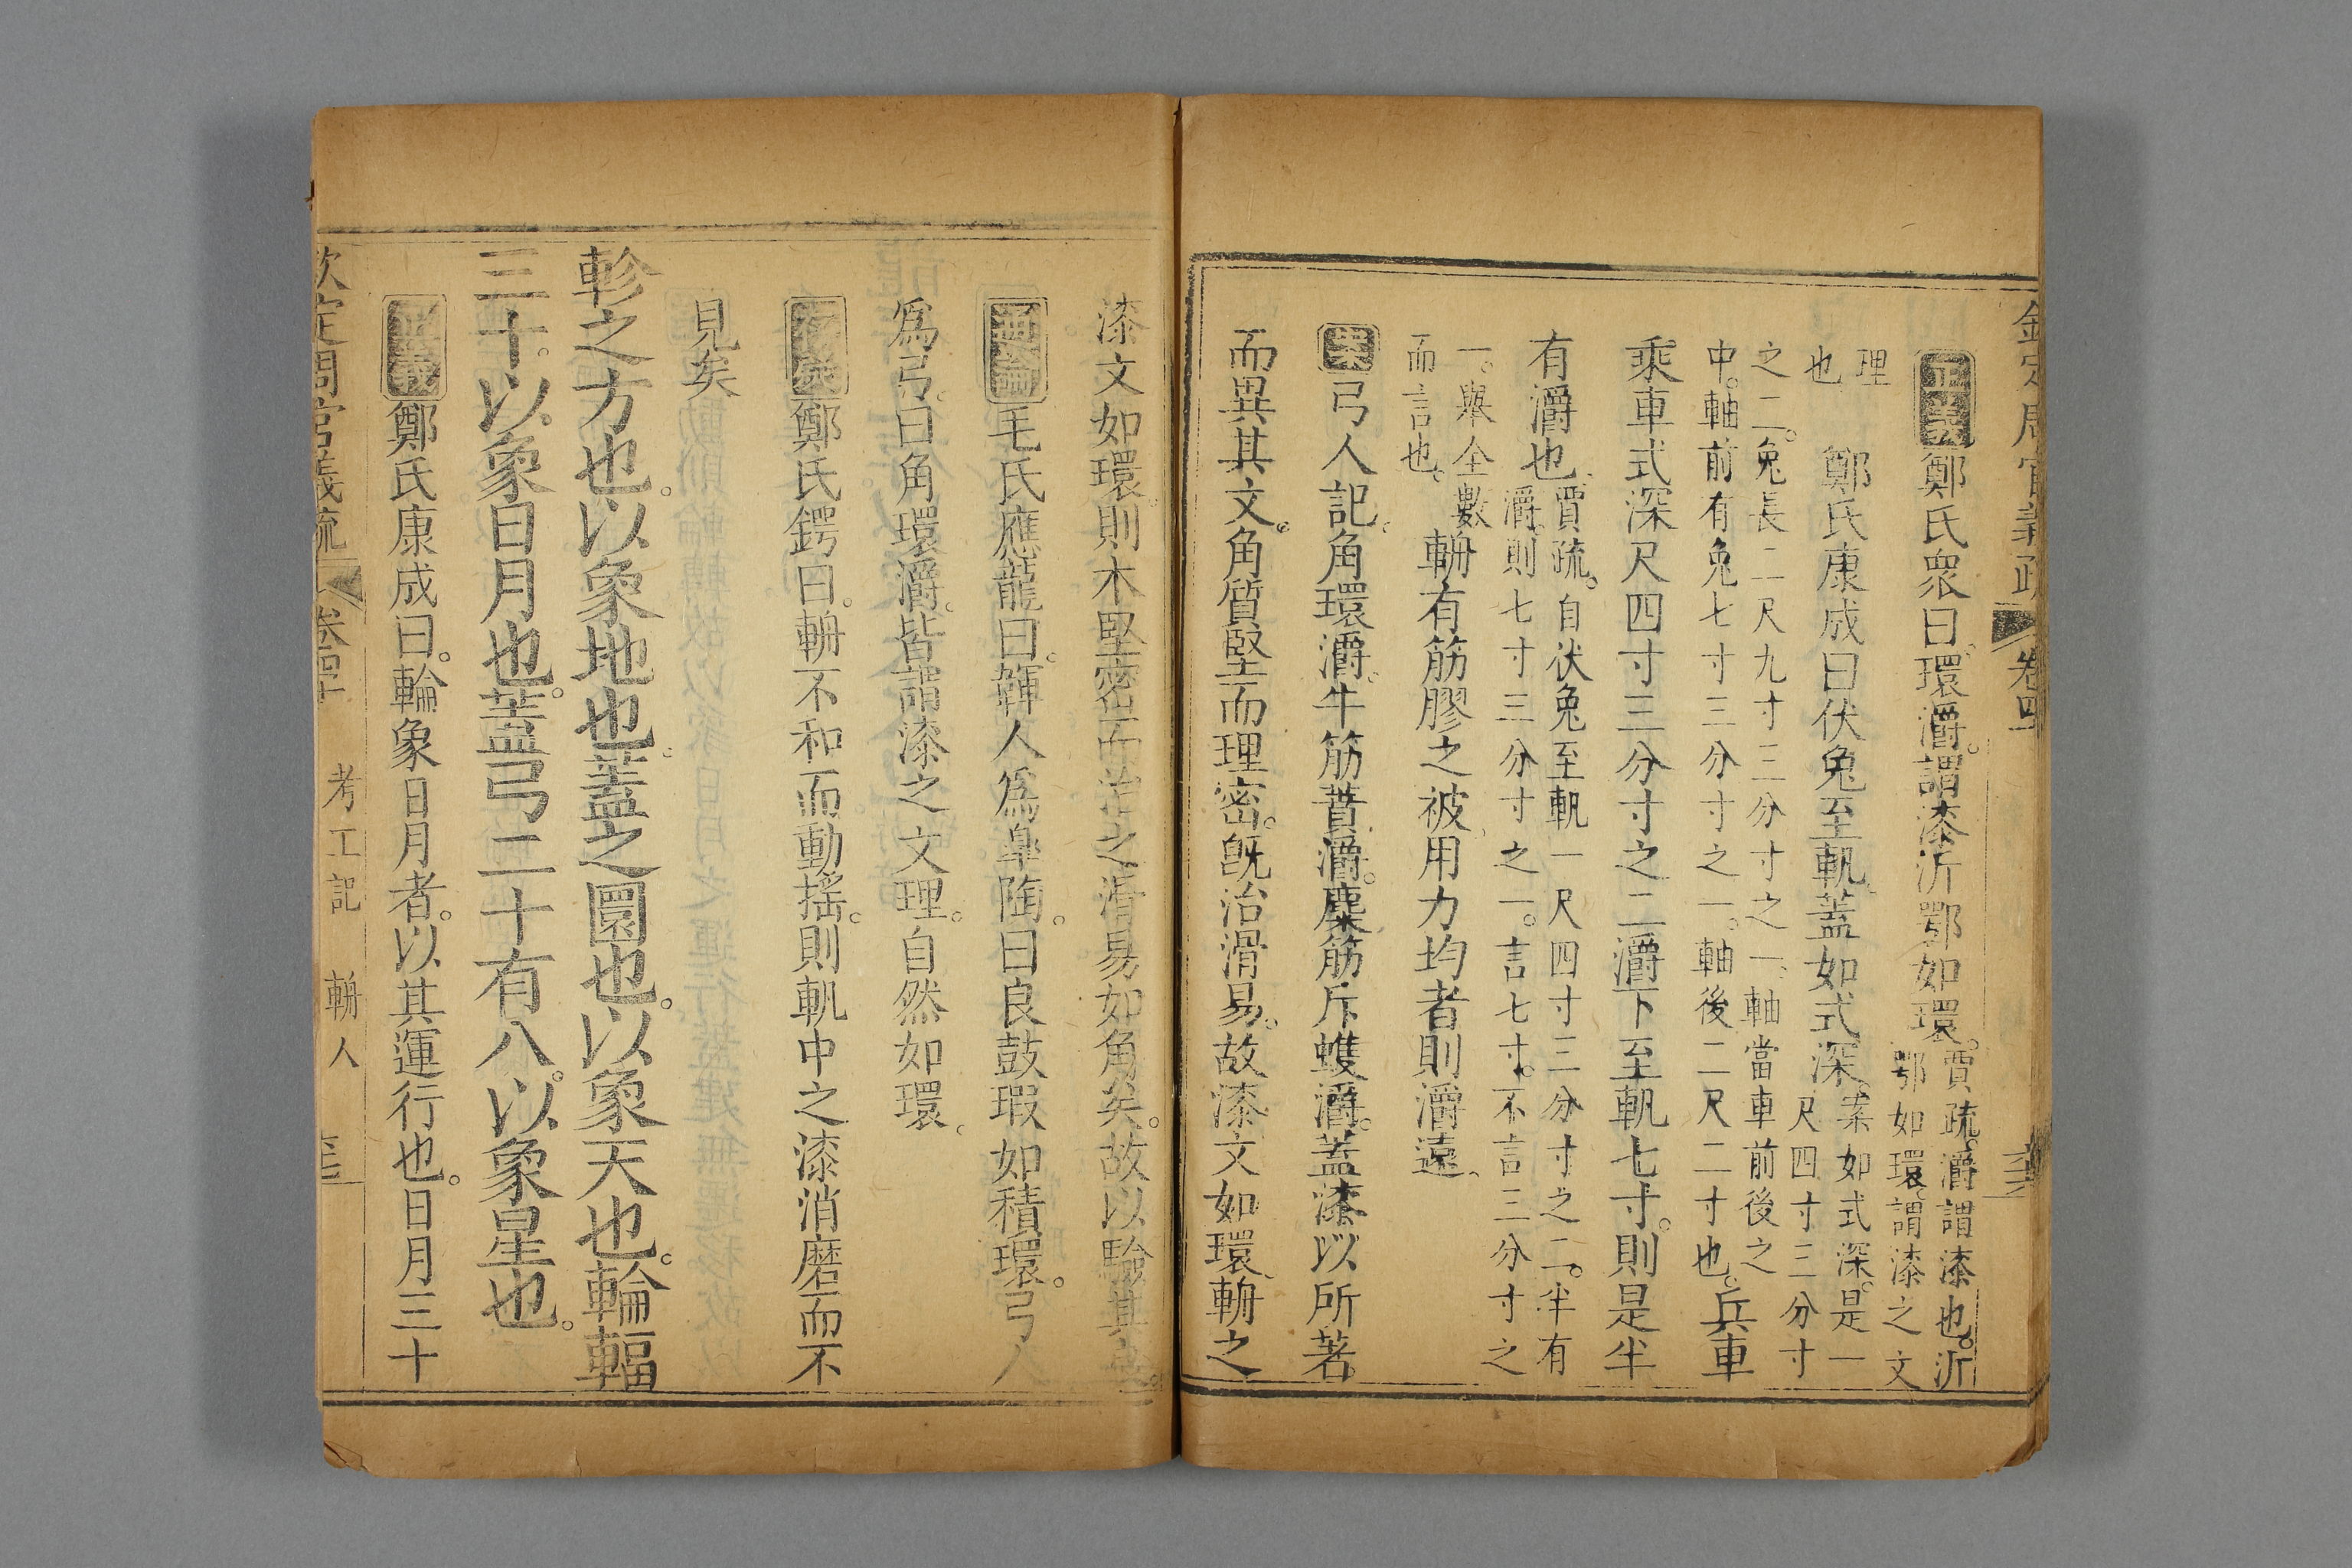 欽定周官義疏 卷四
正義鄭氏衆曰環灂謂漆沂鄂如環賈疏灂謂漆也沂
鄂如環謂漆之文
理
也 鄭氏康成曰伏兔至軓蓋如式深案如式深是一
尺四寸三分寸
之二兔長二尺九寸三分寸之一軸當車前後之
中軸前有兔七寸三分寸之一軸後二尺二寸也兵車
乘車式深尺四寸三分寸之二灂下至軓七寸則是半
有灂也賈疏自伏兔至軓一尺四寸三分寸之二半有
灂則七寸三分寸之一言七寸不言三分寸之
一舉全數
而言也 輈有筋膠之被用力均者則灂遠
案弓人記角環灂牛筋蕡灂麋筋斥蠖灂蓋漆以所著
而異其文角質堅而理密旣治滑易故漆文如環輈之
漆文如環則木堅密而治之滑易如角矣故以驗其良
通論毛氏應龍曰韗人爲臯陶曰良鼓瑕如積環弓人
爲弓曰角環灂皆謂漆之文理自然如環
存疑鄭氏鍔曰輈不和而動搖則軓中之漆消磨而不
見矣
軫之方也以象地也蓋之圜也以象天也輪輻
三十以象日月也蓋弓二十有八以象星也
正義鄭氏康成曰輪象日月者以其運行也日月三十
欽定周官義疏 卷四十 考工記 輈人